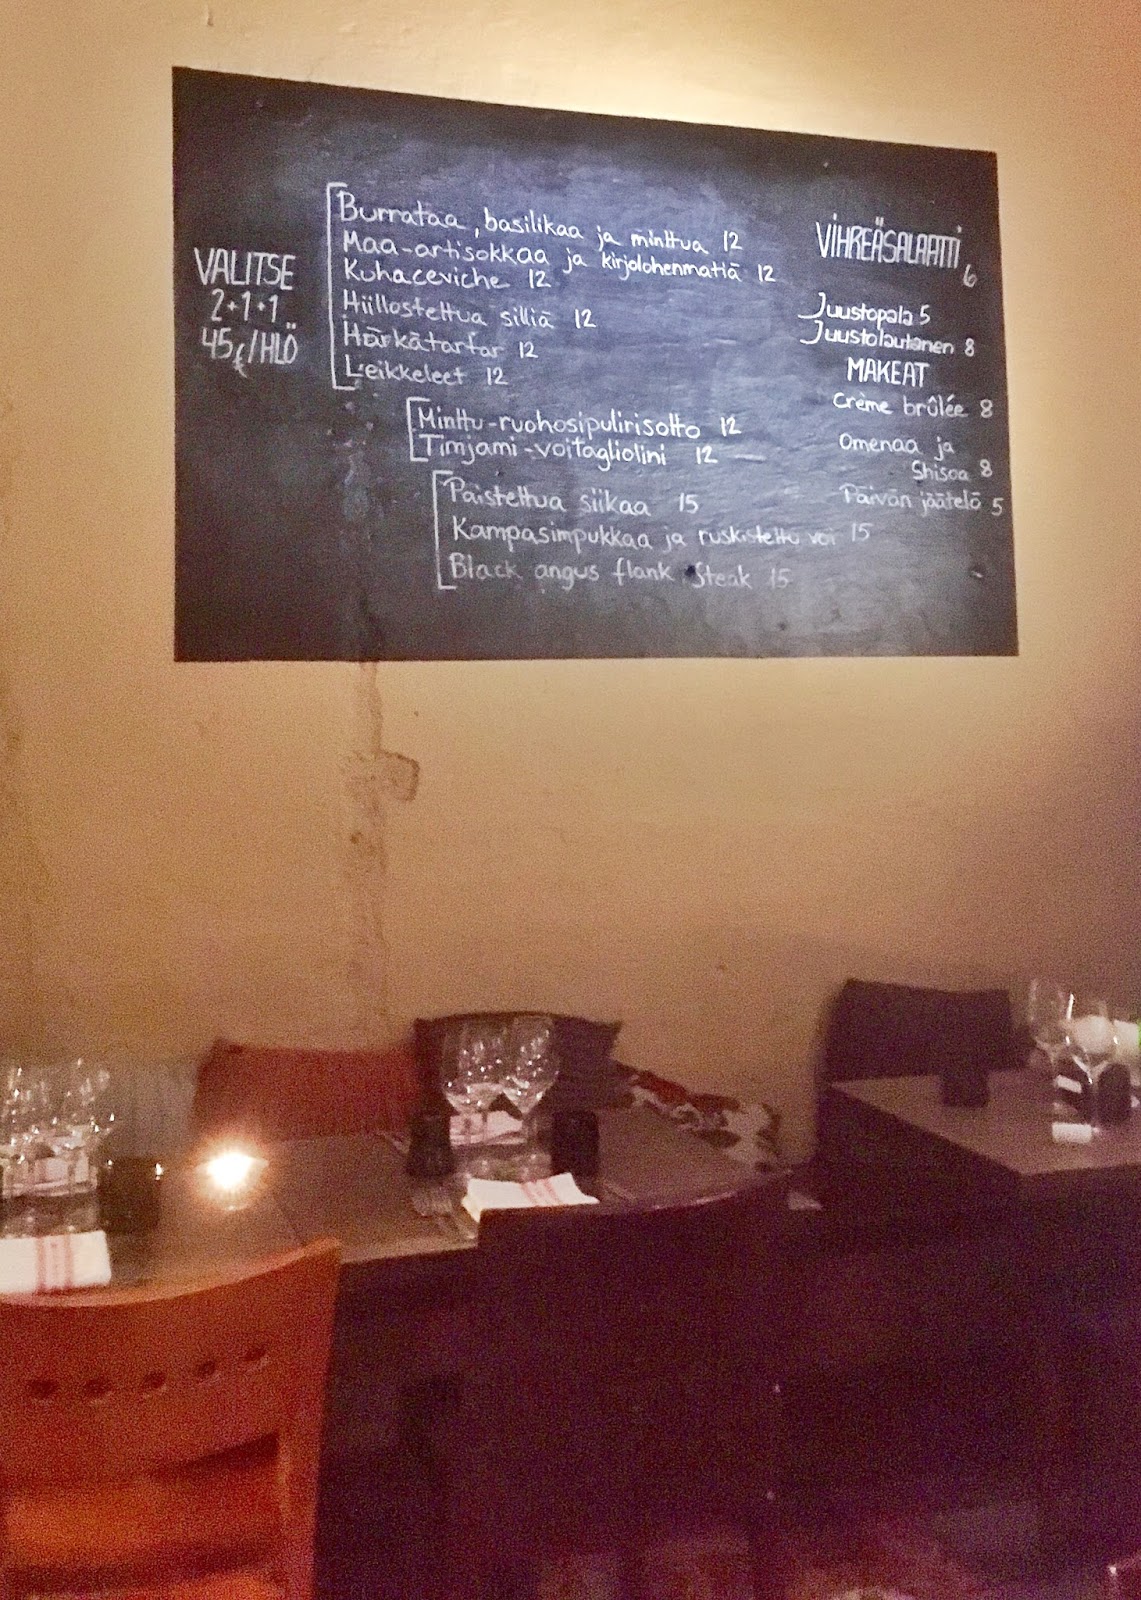 VALITSE
2+1+1
45€/HLÖ
Burrataa, basilikaa ja minttua 12
Maa-artisokkaa ja kirjolohenmätiä 12
Kuhaceviche 12
Hiillostettua silliä 12
Härkätartar 12
Leikkeleet 12
Minttu-ruohosipulirisotto 12
Timjami-voitagliolini 12
Paistettua siikaa 15
Kampasimpukkaa ja ruskistettu voi 15
Black angus flank steak 15
VIHREÄSALAATTI
6
Juustopala 5
Juustolautanen 8
MAKEAT
Crème brûlée 8
Omenaa ja
Shisoa 8
Päivän jäätelö 5